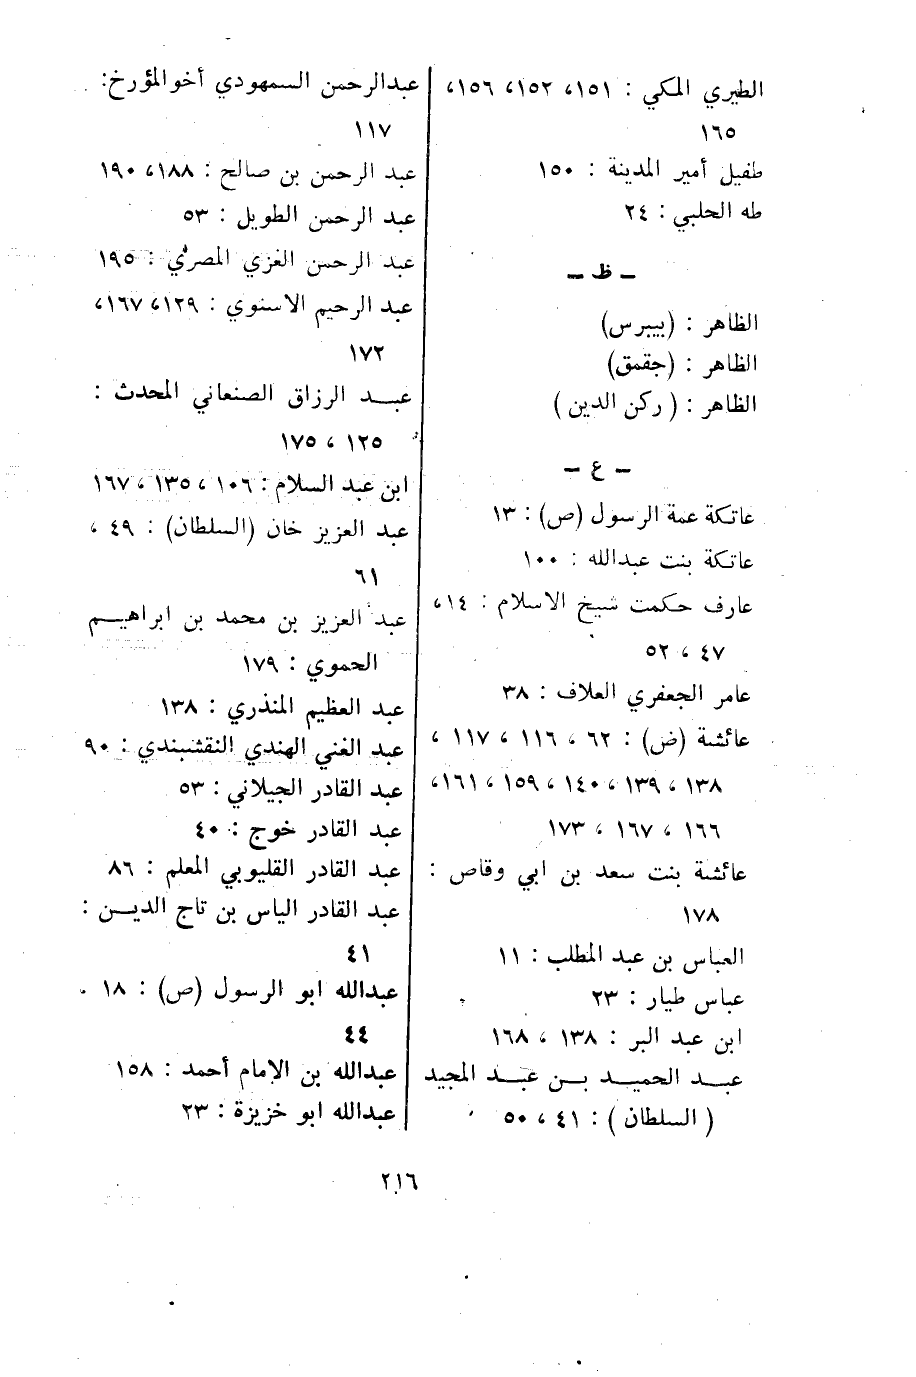 الطبري المكي : ١٥١، ١٥٢، ١٥٦،
١٦٥
طفيل أمير المدينة : ١٥٠
طه الحلبي : ٢٤
ـ ظ ـ
الظاهر : (بيبرس)
الظاهر : (جقمق)
الظاهر : ( ركن الدين )
ـ ع ـ
عاتكة عمة الرسول (ص) : ١٣
عاتكة بنت عبدالله : ١٠٠
عارف حكمت شيخ الاسلام : ١٤،
٤٧ ، ٥٢
عامر الجعفري العلاف : ٣٨
عائشة (ض) : ٦٢ ، ١١٦ ، ١١٧ ،
١٣٨ ، ١٣٩ ، ١٤٠ ، ١٥٩ ، ١٦١،
١٦٦ ، ١٦٧ ، ١٧٣
عائشة بنت سعد بن ابي وقاص :
١٧٨
العباس بن عبد المطلب : ١١
عباس طيار : ٢٣
ابن عبد البر : ١٣٨ ، ١٦٨
عبـد الحميـد بـن عبـد المجيد
( السلطان ) : ٤١ ، ٥٠
عبدالرحمن السمهودي أخوالمؤرخ:
١١٧
عبد الرحمن بن صالح : ١٨٨، ١٩٠
عبد الرحمن الطويل : ٥٣
عبد الرحمن الغزي المصري : ١٩٥
عبد الرحيم الاسنوي : ١٢٩، ١٦٧،
١٧٢
عبـد الرزاق الصنعاني المحدث :
١٢٥ ، ١٧٥
ابن عبد السلام : ١٠٦ ، ١٣٥ ، ١٦٧
عبد العزيز خان (السلطان) : ٤٩ ،
٦١
عبد العزيز بن محمد بن ابراهيـم
الحموي : ١٧٩
عبد العظيم المنذري : ١٣٨
عبد الغني الهندي النقشبندي : ٩٠
عبد القادر الجيلاني : ٥٣
عبد القادر خوج : ٤٠
عبد القادر القليوبي المعلم : ٨٦
عبد القادر الياس بن تاج الديـن :
٤١
عبدالله ابو الرسول (ص) : ١٨ .
٤٤
عبدالله بن الإمام أحمد : ١٥٨
عبدالله ابو خزيزة : ٢٣
٢١٦